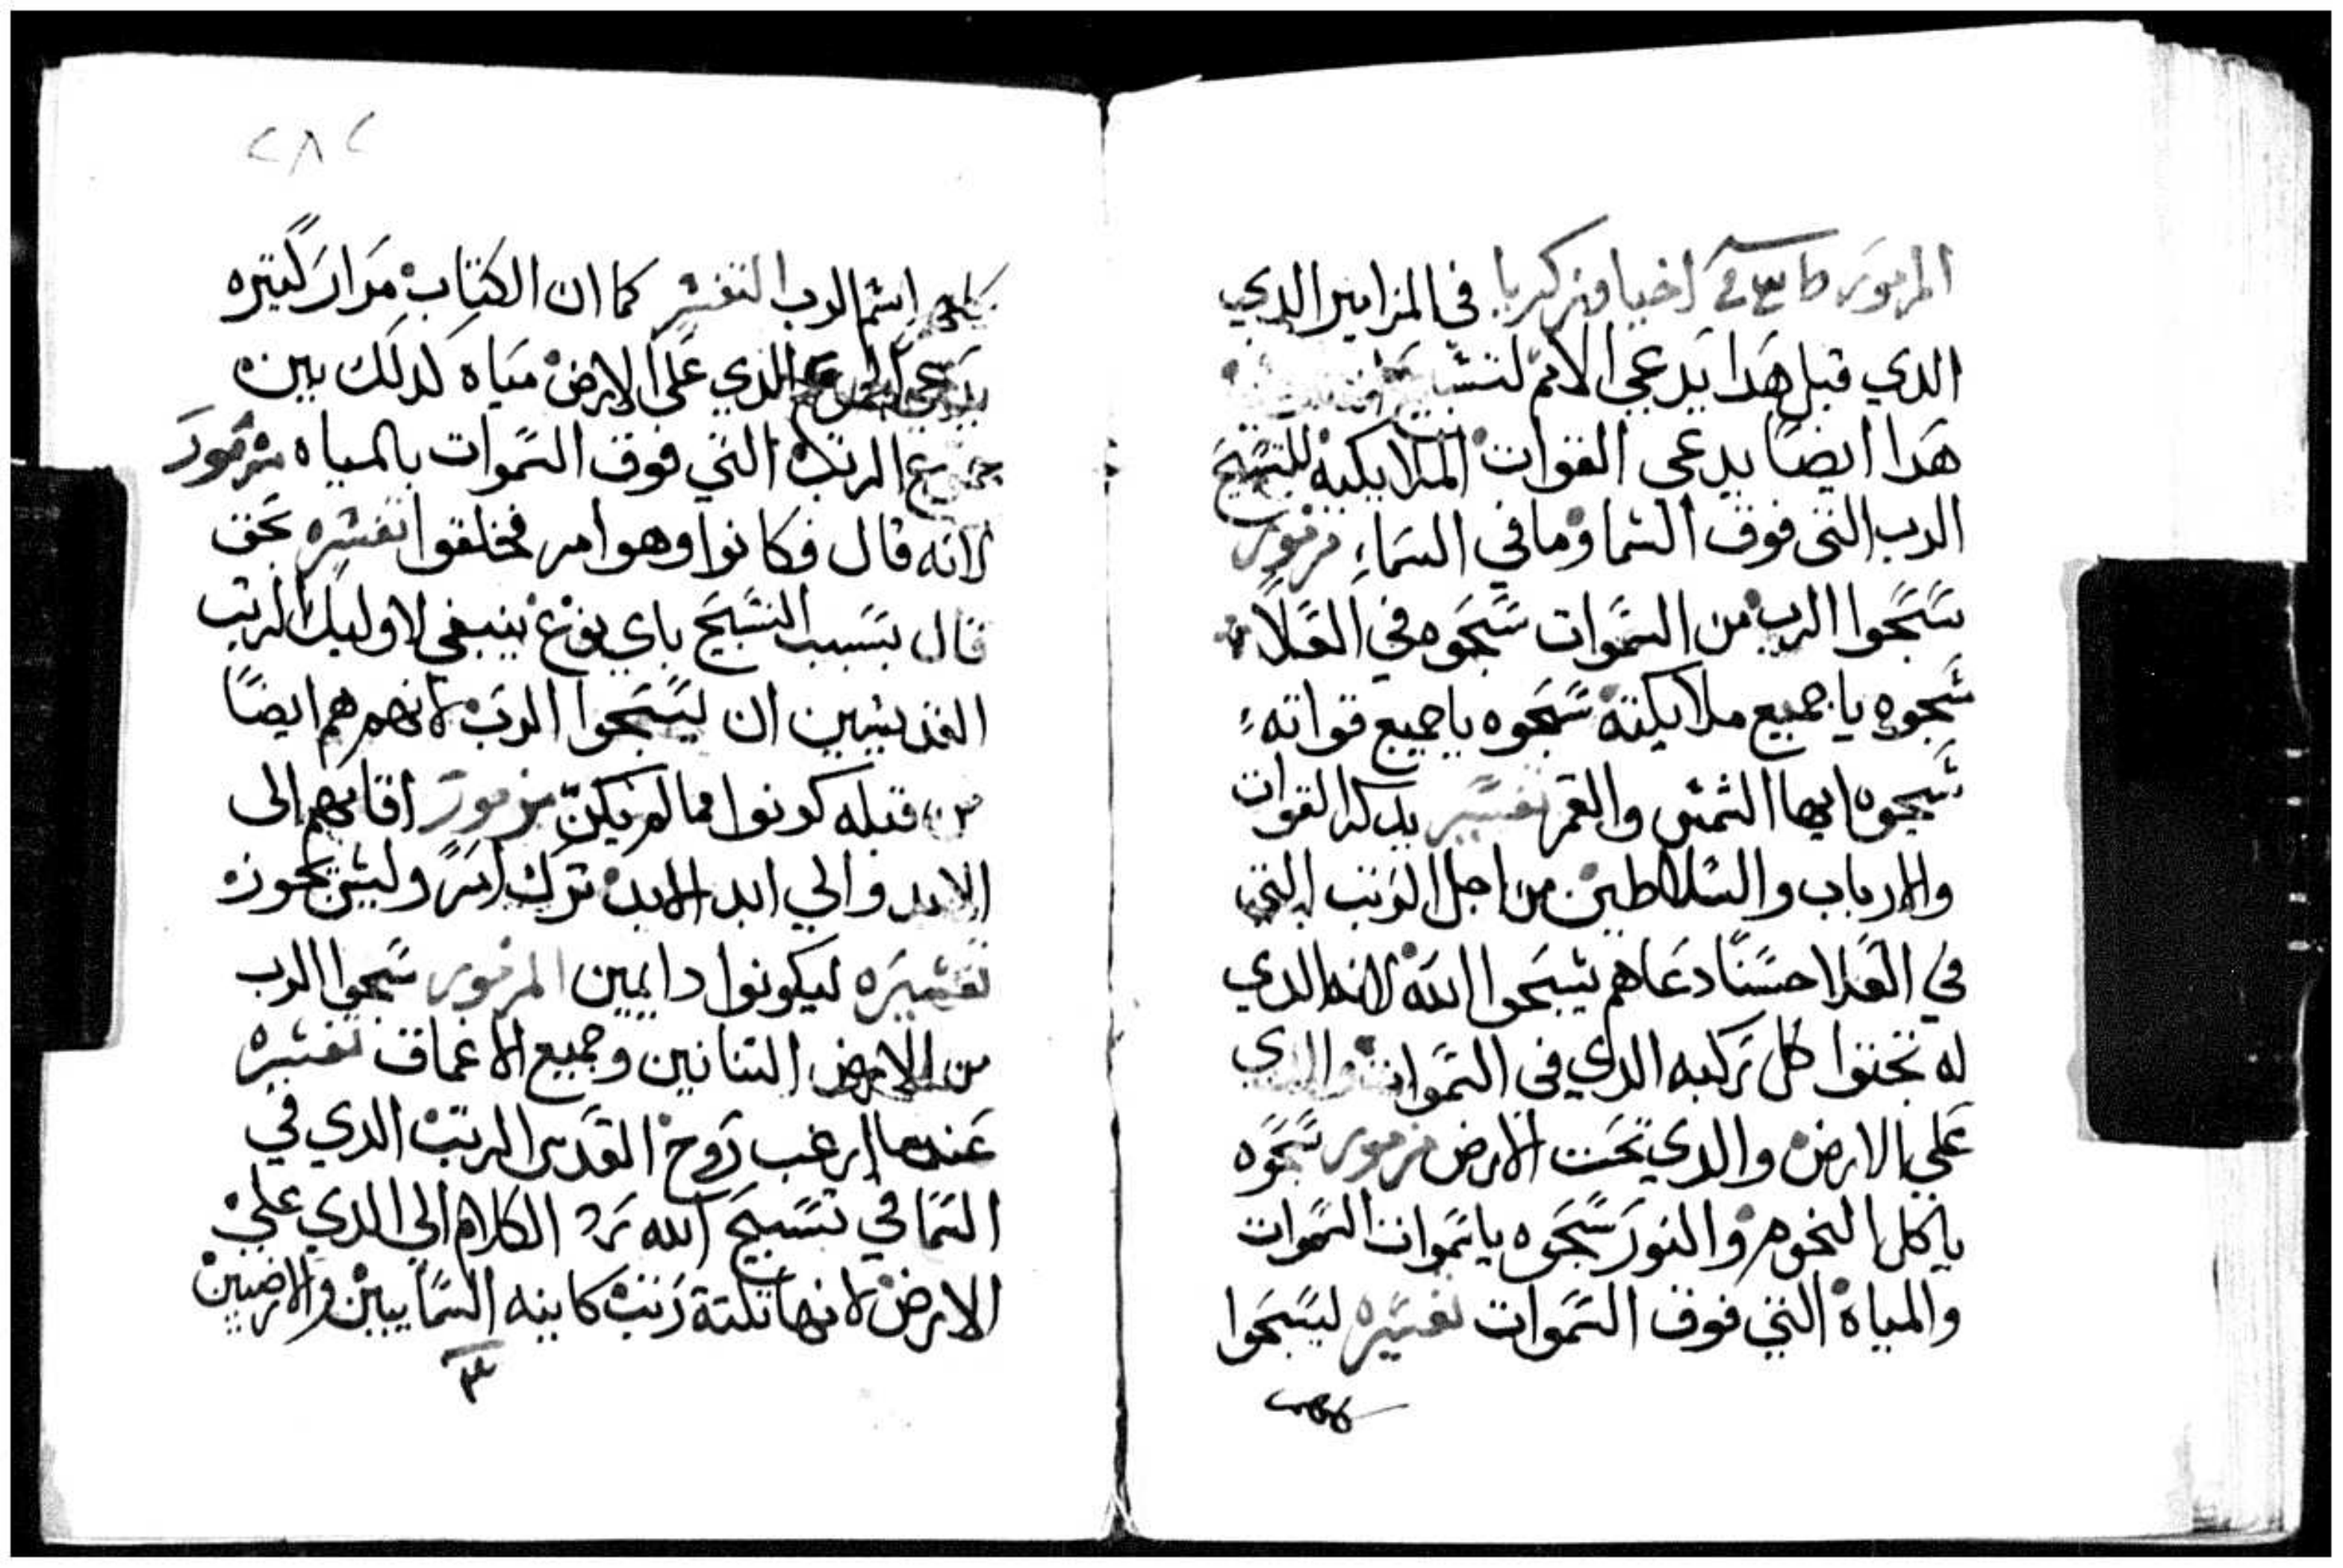 المزمور اخيا وزكريا في المزامير الدي
الدي قبل هدا يدعي الامم
هدا ايضا يدعي القوات الملايكيه للتسبيح
الرب التى فوق السما وما في السماء مزمور
سبحوا الرب من السموات سبحوه في العلا
سبحوه يا جميع ملايكته سبحوه يا جميع قواته
سبحوه ايها الشمس والقمر تفسير يدكر القوات
والارباب والسلاطين من اجل الرتب التى
في العلا حسنا دعاهم يسبحوا الله لانه الدي
له تحننوا كل ركبه الدي فى السموات والدي
علي الارض والدي تحت الارض مزمور سبحوه
يا كل النجوم والنور سبحوه يا سموات السموات
والمياة التي فوق السموات تفسيره ليسبحوا
كلهم
٢٨٢
كلهم اسم الرب التفسير كما ان الكتاب مرار كتيره
يدعي الدي علي الارض مياه كدلك بين
جميع الرتب التي فوق السموات بالمياه مزمور
لانه قال فكانوا وهو امر فخلقوا تفسيره بحق
قال بسبب التسبيح باي نوع ينبغي لاوليك الرتب
القديسين ان يسبحوا الرب لانهم هم ايضا
من قبله كونوا مما لم يكن مزمور اقامهم الى
الابد والي ابد الابد ترك امر وليس يجوز
تفسيره ليكونوا دايمين المزمور سبحوا الرب
من الارض التنانين وجميع الاعماق تفسيره
عندما ارغب روح القدس الرتب الدي في
السما في تسبيح الله رد الكلام الي الدي علي
الارض لانها تلتة رتب كاينه السماييين والارضيين